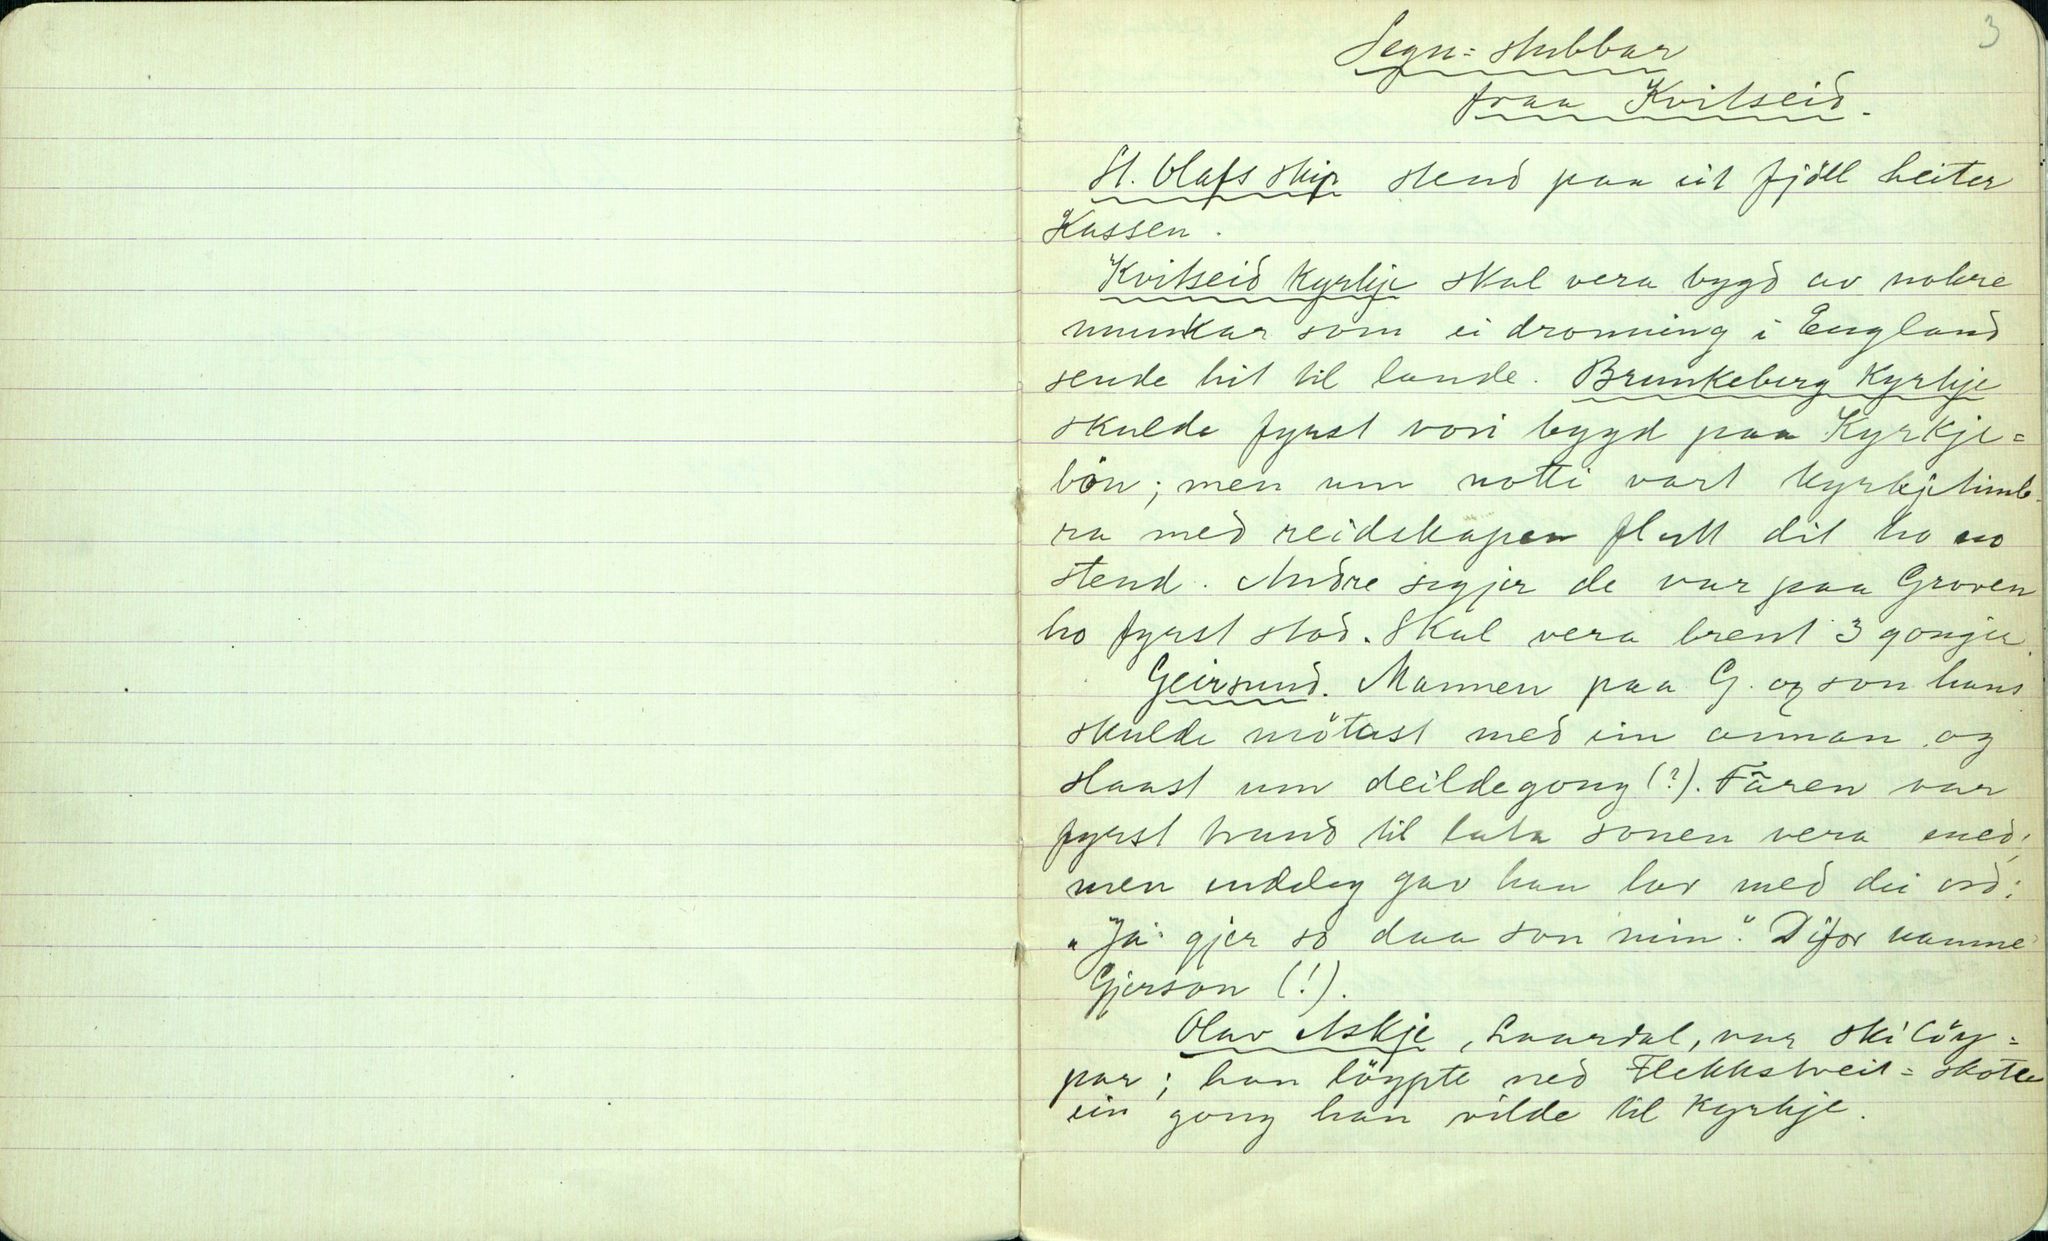 3
Segn-stubbar
fraa Kvitseid.
St. Olafs skip stend paa eit fjöll heiter
Kassen.
Kvitseid kyrkje skal vera bygd av nokre
munkar som ei dronning i England
sende hit til lande. Brunkeberg kyrkje
skulde fyrst vori bygd paa Kyrkje=
bön; men um notti vart kyrkjetimb-
ra med reidskapen flutt dit ho no
stend. Andre segjer de var paa Groven
ho fyrst stod. Skal vera brent 3 gonger.
Geirsund. Mannen paa G. og son hans
skulde mötast med ein annan og
slaast um deildegong (?). Fåren var
fyrst traud til lata sonen vera med;
men endeleg gav han lov med dei ord:
"Ja gjer so daa son min". Difor namne
Gjerson (!).
Olav Askje, Laardal, var skilöy=
par; han löypte ned Flekkstveit=skoten
ein gong han vilde til kyrkje.